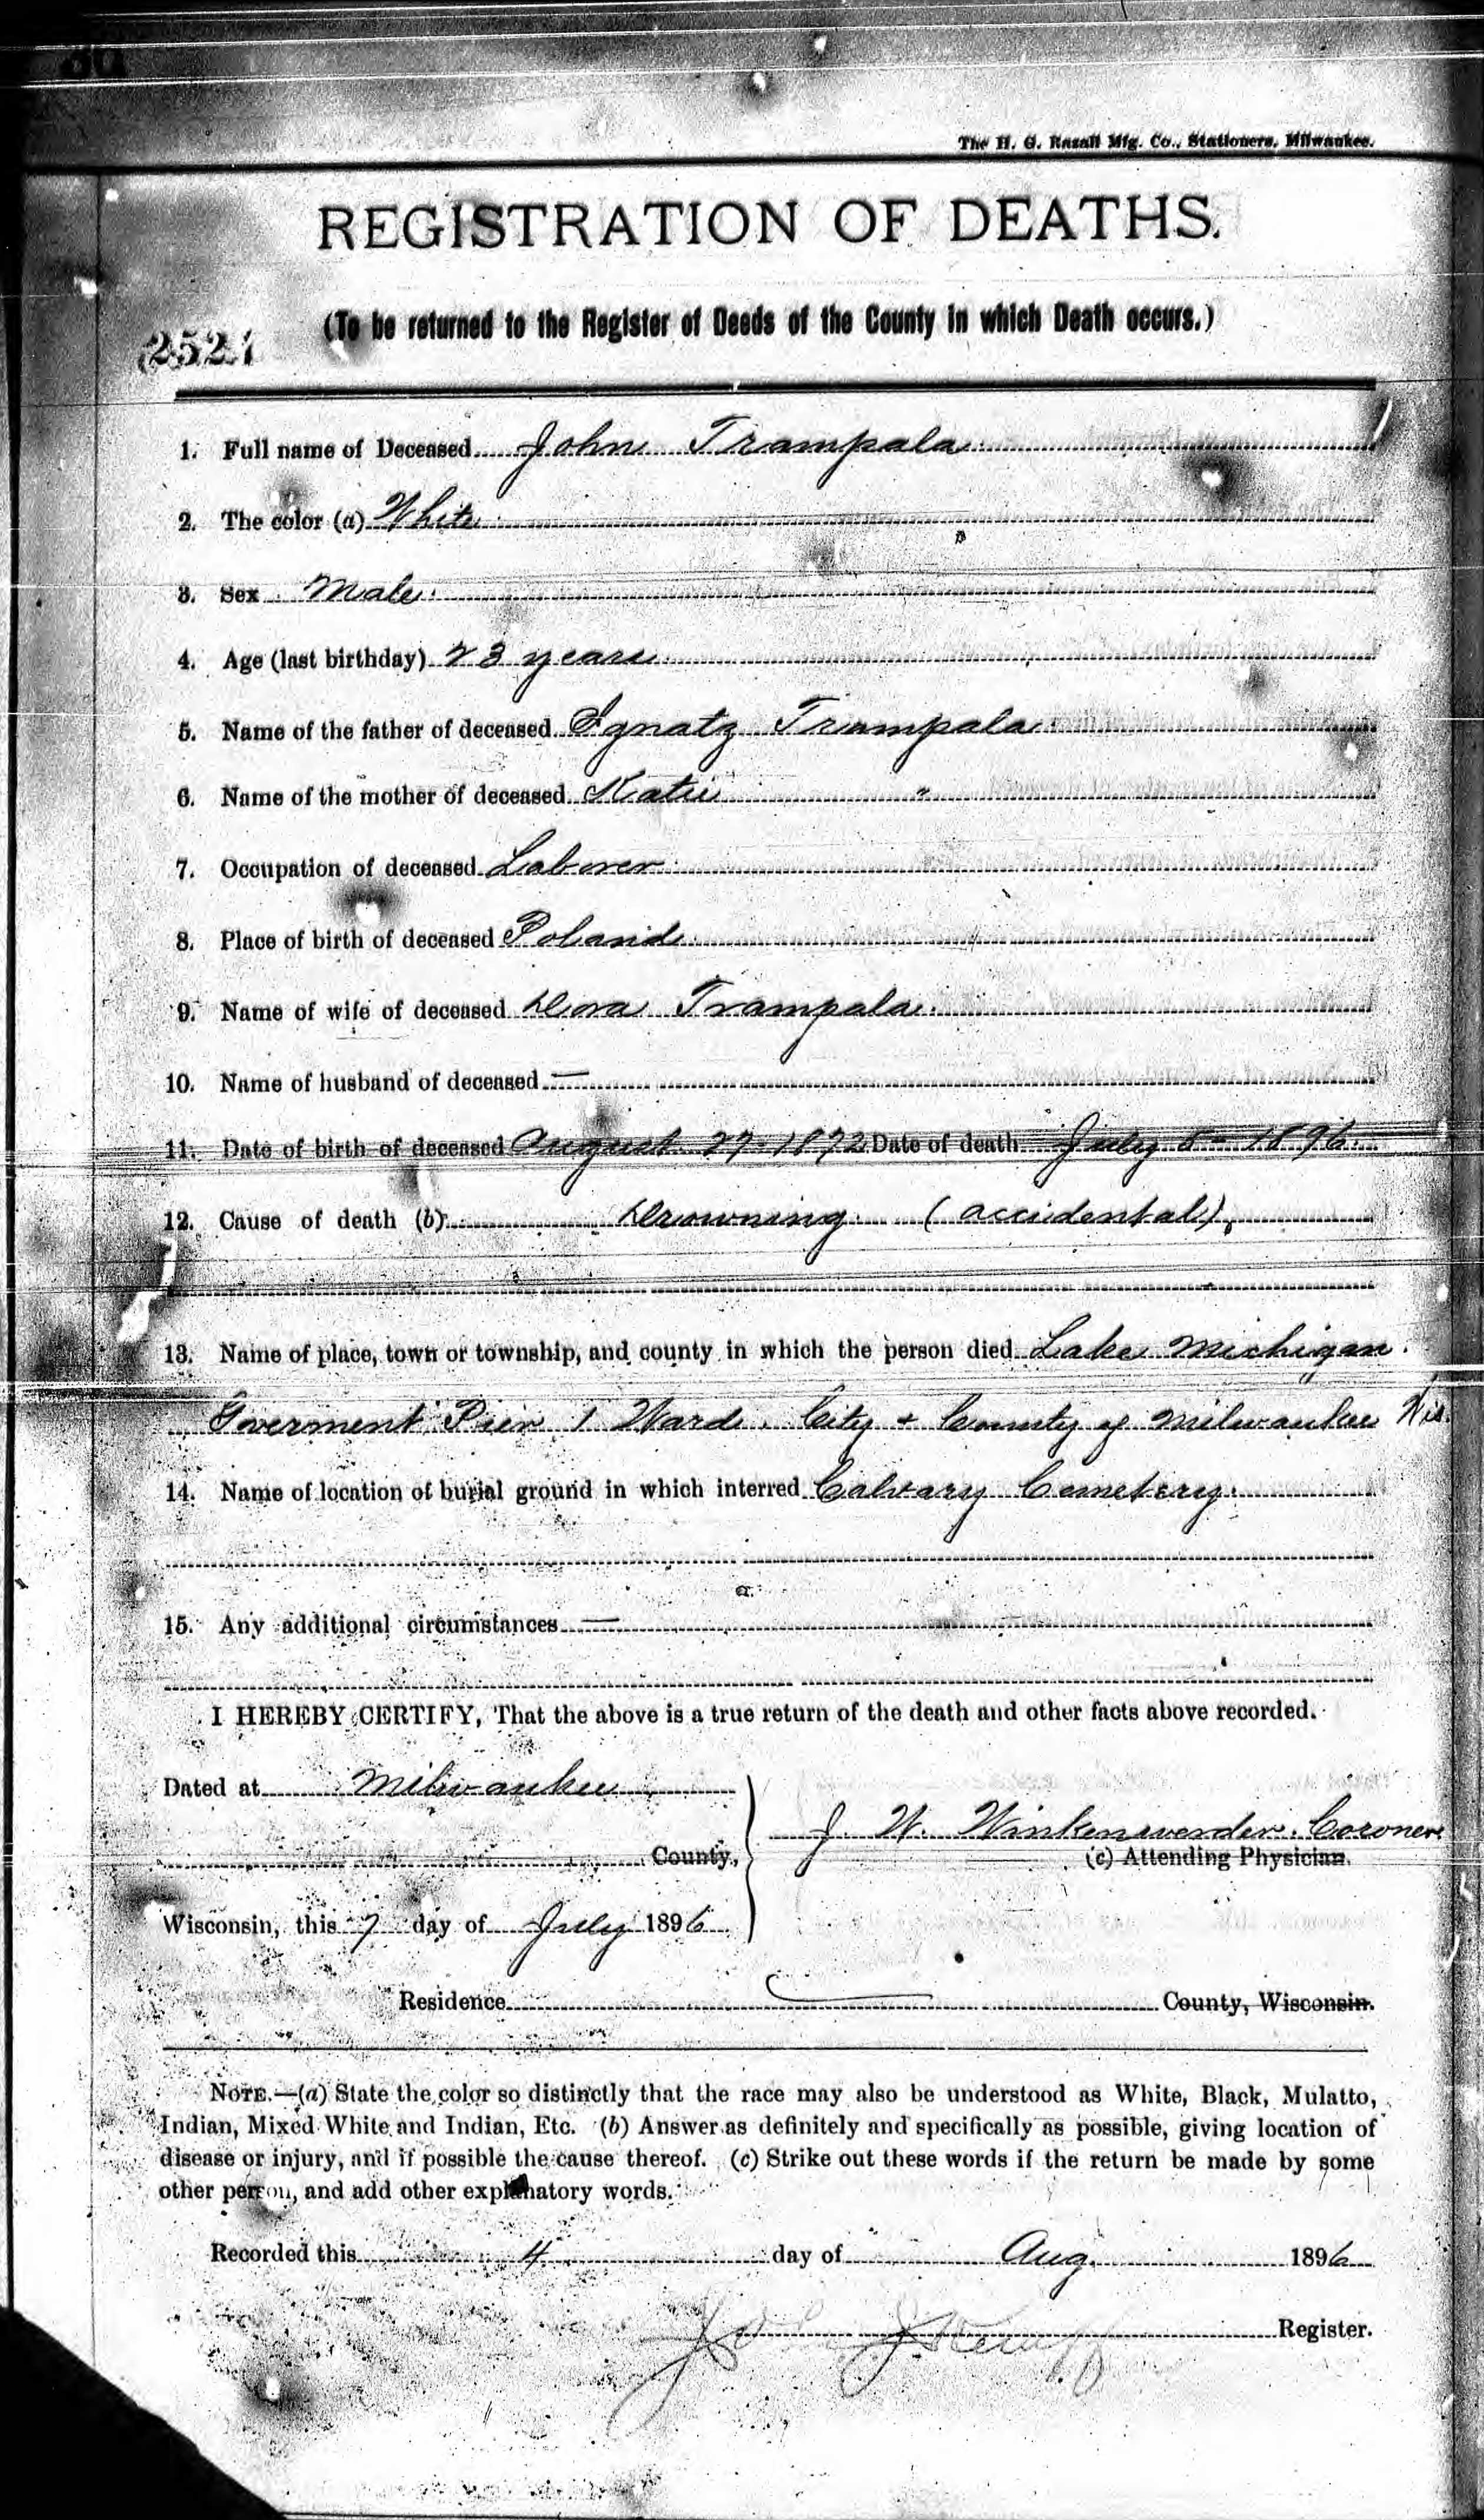 The H. G. Razall Mfg. Co., Stationers, Milwaukee.
REGISTRATION OF DEATHS.
(To be returned to the Register of Deeds of the County in which Death occurs.)
2521
1. Full name of Deceased John Trampala
2. The color (a) White
3. Sex Male
4. Age (last birthday) 23 years
5. Name of the father of deceased Ignatz Trampala
6. Name of the mother of deceased Katie "
7. Occupation of deceased Laborer
8. Place of birth of deceased Poland
9. Name of wife of deceased Dora Trampala
10. Name of husband of deceased —
11. Date of birth of deceased August 27 - 1872 Date of death July 5 - 1896
12. Cause of death (b) Drowning (accidental),
13. Name of place, town or township, and county in which the person died Lake Michigan
Goverment Pier 1 Ward. City + County of Milwaukee Wis.
14. Name of location of burial ground in which interred Calvary Cemetery
15. Any additional circumstances —
I HEREBY CERTIFY, That the above is a true return of the death and other facts above recorded.
Dated at Milwaukee
J. W. Winkenwerder. Coroner
County,
(c) Attending Physician.
Wisconsin, this 7 day of July 1896
Residence County, Wisconsin.
NOTE.—(a) State the color so distinctly that the race may also be understood as White, Black, Mulatto,
Indian, Mixed White and Indian, Etc. (b) Answer as definitely and specifically as possible, giving location of
disease or injury, and if possible the cause thereof. (c) Strike out these words if the return be made by some
other person, and add other explanatory words.
Recorded this 4 day of Aug. 1896
Register.